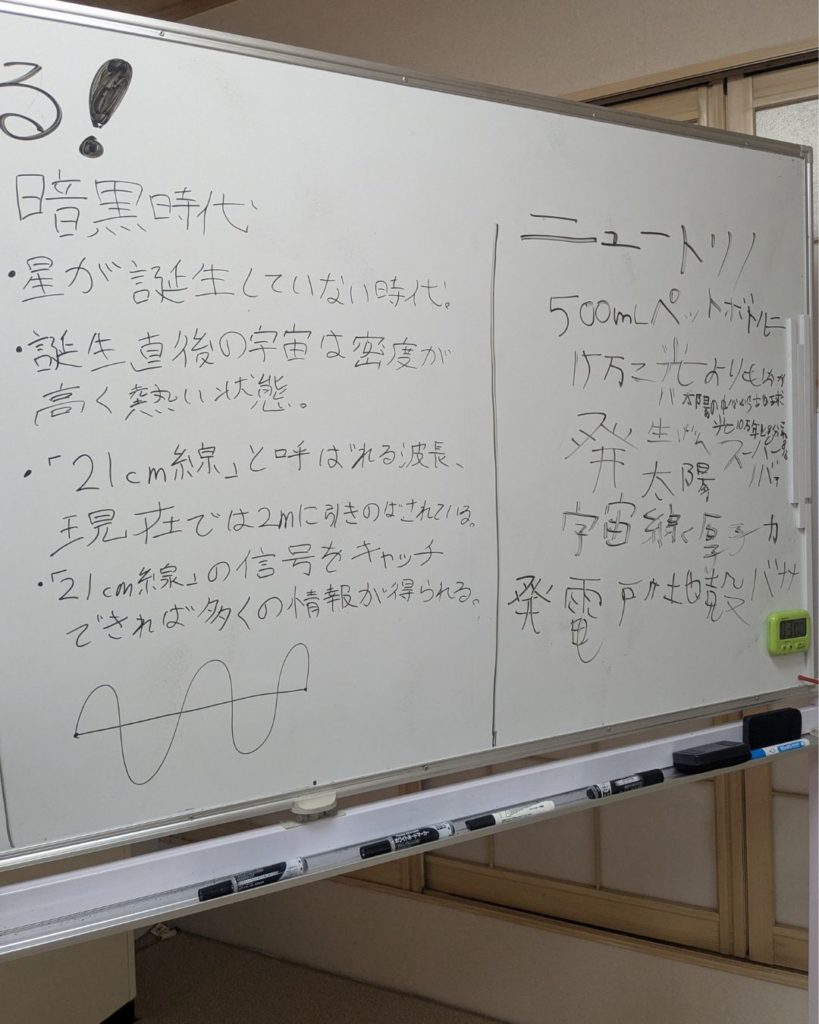 る!
暗黒時代
・星が誕生していない時代。
・誕生直後の宇宙は密度が
高く熱い状態。
・「21cm線」と呼ばれる波長、
現在では2mに引きのばされている。
・「21cm線」の信号をキャッチ
できれば多くの情報が得られる。
ニュートリノ
500mLペットボトルに
万こ光より
太陽の中心から地球
発生げん スーパー
太陽
宇宙線 原子力
発電所 地殻
ホワイトボードマーカー